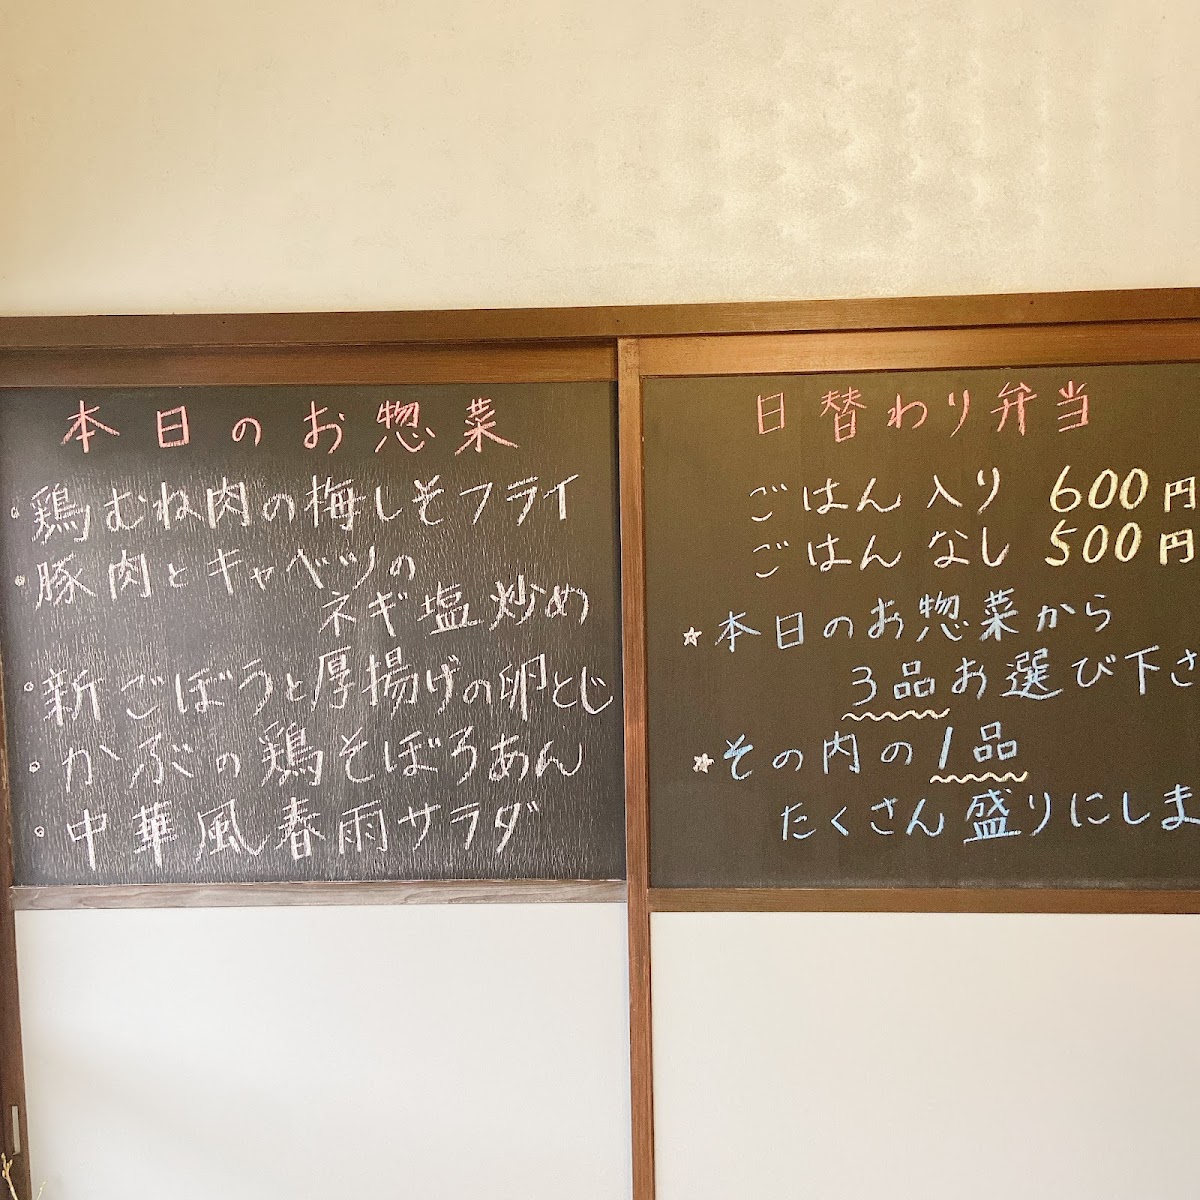 本日のお惣菜
。鶏むね肉の梅しそフライ
。豚肉とキャベツの
ネギ塩炒め
。新ごぼうと厚揚げの卵とじ
。かぶの鶏そぼろあん
。中華風春雨サラダ
日替わり弁当
ごはん入り 600円
ごはんなし 500円
☆本日のお惣菜から
3品お選び下さ
☆その内の1品
たくさん盛りにしま